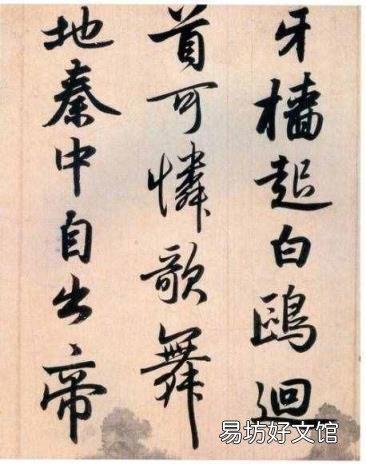 牙檣起白鷗迴
首可憐歌舞
地秦中自古帝
易坊好文馆